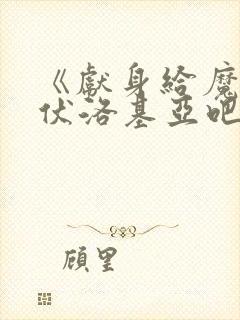 《獻身給魔
伏洛基亞吧
顧里